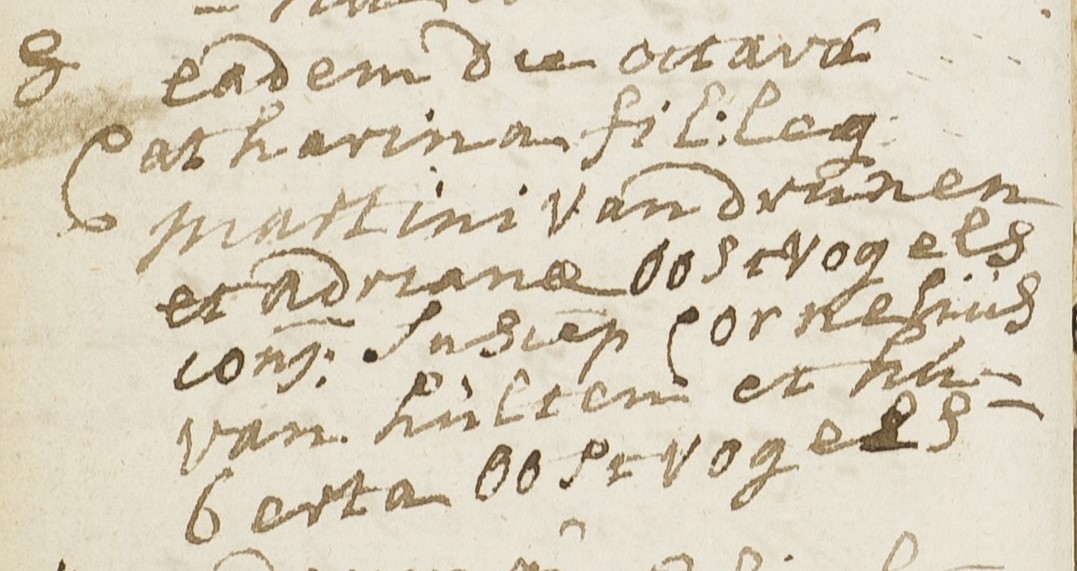 8 eadem die octava
Catharina fil: leg
martini van drunen
et adrianæ oostvogels
conj: Suscep Cornelius
van hulten et hu-
berta oostvogels